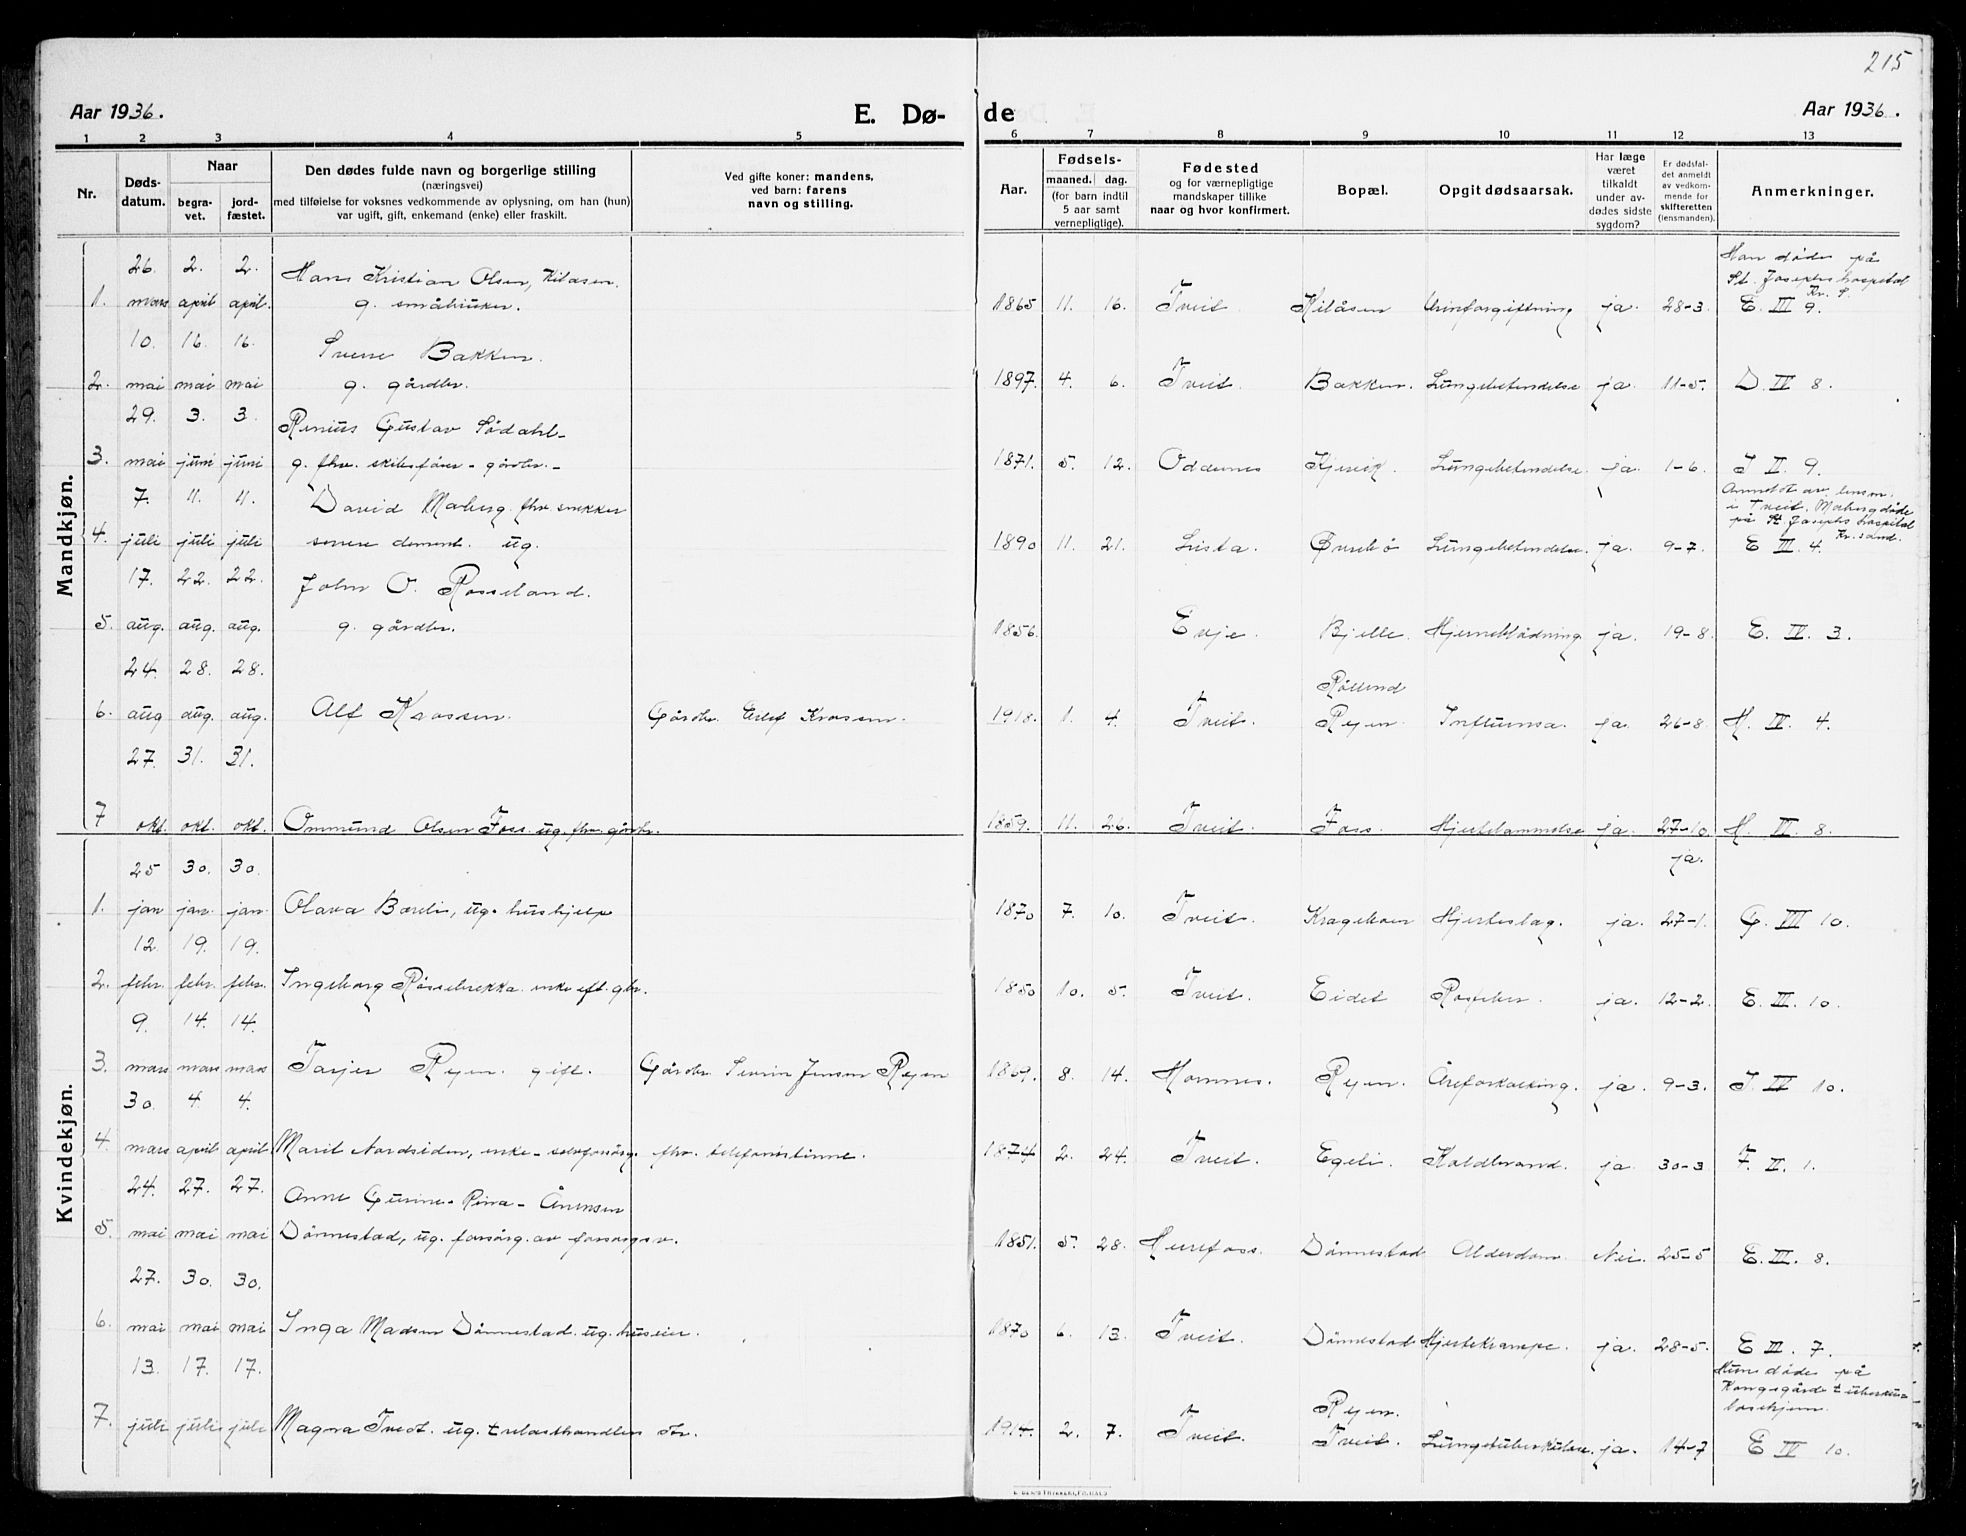 215
Aar 1936.
E. Dø-
de
Aar 1936.
1 2 3 4 5 6 7 8 9 10 11 12 13
Nr.
Døds-
datum.
Naar
begra-
vet.
jord-
fæstet.
Den dødes fulde navn og borgerlige stilling
(næringsvei)
med tilføielse for voksnes vedkommende av oplysning, om han (hun)
var ugift, gift, enkemand (enke) eller fraskilt.
Ved gifte koner: mandens,
ved barn: farens
navn og stilling.
Aar.
Fødsels-
maaned. dag.
(for barn indtil
5 aar samt
vernepligtige).
Fødested
og for værnepligtige
mandskaper tillike
naar og hvor konfirmert.
Bopæl.
Opgit dødsaarsak.
Har læge
været
tilkaldt
under av-
dødes sidste
sygdom?
Er dødsfal-
det anmeldt
av vedkom-
mende for
skifteretten
(lensmanden).
Anmerkninger.
Mandkjøn.
26. 2. 2. Hans Kristian Olsen, Kilåsen. Han døde på
St. Josephs hospital
Kr. S.
1. mars april april. g. småbruker. 1865 11. 16. Tveit. Kilåsen Urinforgiftning ja. 28-3. E III 9.
10. 16. 16. Sverre Bakken.
2. mai mai mai g. gårdbr. 1897. 4. 6. Tveit. Bakken. Lungebetendelse ja. 11-5. D. IV 8.
29. 3. 3. Renius Gustav Sødahl-
3. mai juni juni g. fhv. skibsfører - gårdbr. - 1871. 5. 12. Oddernes Kjevik. Lungebetendelse. ja. 1-6. J II. 9.
7. 11. 11. David Moberg. fhv. snekker Anmeldt av lensm.
i Tveit. Moberg døde
på St. Josephs hospital
Kr. sand.
4. juli juli juli senere dement. ug. 1890 11. 21. Lista. Øvrebø Lungebetendelse. ja. 9-7. E III. 4.
17. 22. 22. John O. Rosseland.
5. aug. aug. aug. g. gårdbr. 1856. Evje. Bjelle. Hjerneblødning ja. 19-8. E. IV. 3.
24. 28. 28.
6. aug aug. aug. Alf Krossen. Gårdbr. Eilef Krossen. 1918. 1. 4. Tveit. Ryen. Influensa. ja. 26-8. H. IV. 4.
27. 31. 31.
7 okt. okt. okt. Ommund Olsen Foss. ug. fhv. gårdbr. 1859. 11. 26. Tveit. Foss. Hjertelammelse ja. 27-10. H. IV. 8.
Kvindekjøn.
25 30. 30. ja.
1. jan jan. jan. Olava Bærlii, ug. hushjelp 1870 7. 10. Tveit. Krageboen Hjerteslag. ja. 27-1. G. III 10.
12. 19. 19.
2. febr. febr. febr. Ingeborg Røssebrekka. enke eft. gbr. 1850 10. 5. Tveit. Eidet Rosfeber. ja. 12-2. E. III. 10.
9. 14. 14.
3. mars mars mars Tarjer Ryen. gift. Gårdbr. Severin Jensen Ryen 1869. 8. 14. Hommes. Ryen. Åreforkalkning. ja. 9-3. J. IV 10.
30. 4. 4.
4. mars april april. Marit Nordsiden, enke - selvforsørg. fhv. telefonistinne. 1874 2. 24. Tveit. Egeli. Koldbrand. ja. 30-3. F. II. 1.
24. 27. 27. Anne Gurine-Rina-Ånensen
5. mai mai mai Dønnestad, ug. forsørg. av forsorgsv. 1851. 5. 28. Herefoss. Dønnestad Alderdom. Nei. 25-5 E. III. 8.
27. 30. 30.
6. mai mai mai Inga Madsen Dønnestad. ug. huseier. 1870 6. 13. Tveit. Dønnestad Hjertekrampe. ja. 28-5. E III. 7.
13. 17. 17. Hun døde på
Kongsgård tuberku-
losehjem.
Ryen.
7. juli juli juli Magna Tvedt. ug. trelasthandlers dtr. 1914. 2. 7. Tveit. Tveit. Lungetuberkulose. ja. 14-7 E IV 10.